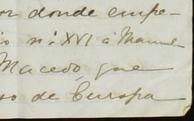 or donde empe-
io nº XVI á Manue
Macedo, que
so de Europa